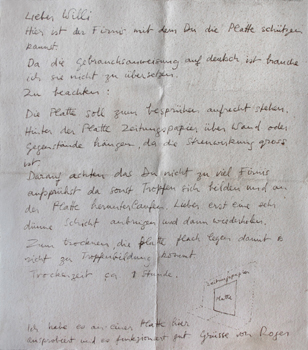 Lieber Willi
Hier ist der Firnis mit dem Du die Platte schützen
kannst.
Da die Gebrauchsanweisung auf deutsch ist brauche
ich sie nicht zu übersetzen.
Zu beachten:
Die Platte soll zum besprühen aufrecht stehen.
Hinter der Platte Zeitungspapier über Wand oder
Gegenstände hängen, da die Streuwirkung gross
ist.
Darauf achten das Du nicht zu viel Firnis
aufsprühst da sonst Tropfen sich bilden und an
der Platte herunterlaufen. Lieber erst eine sehr
dünne Schicht anbringen und dann wiederholen.
Zum trocknen die Platte flach legen damit es
nicht zu Tropfenbildung kommt.
Trockenzeit ca 1 Stunde.
Zeitungspapier
Platte
Ich habe es an einer Platte hier
ausprobiert und es funktioniert gut Grüsse von Roger